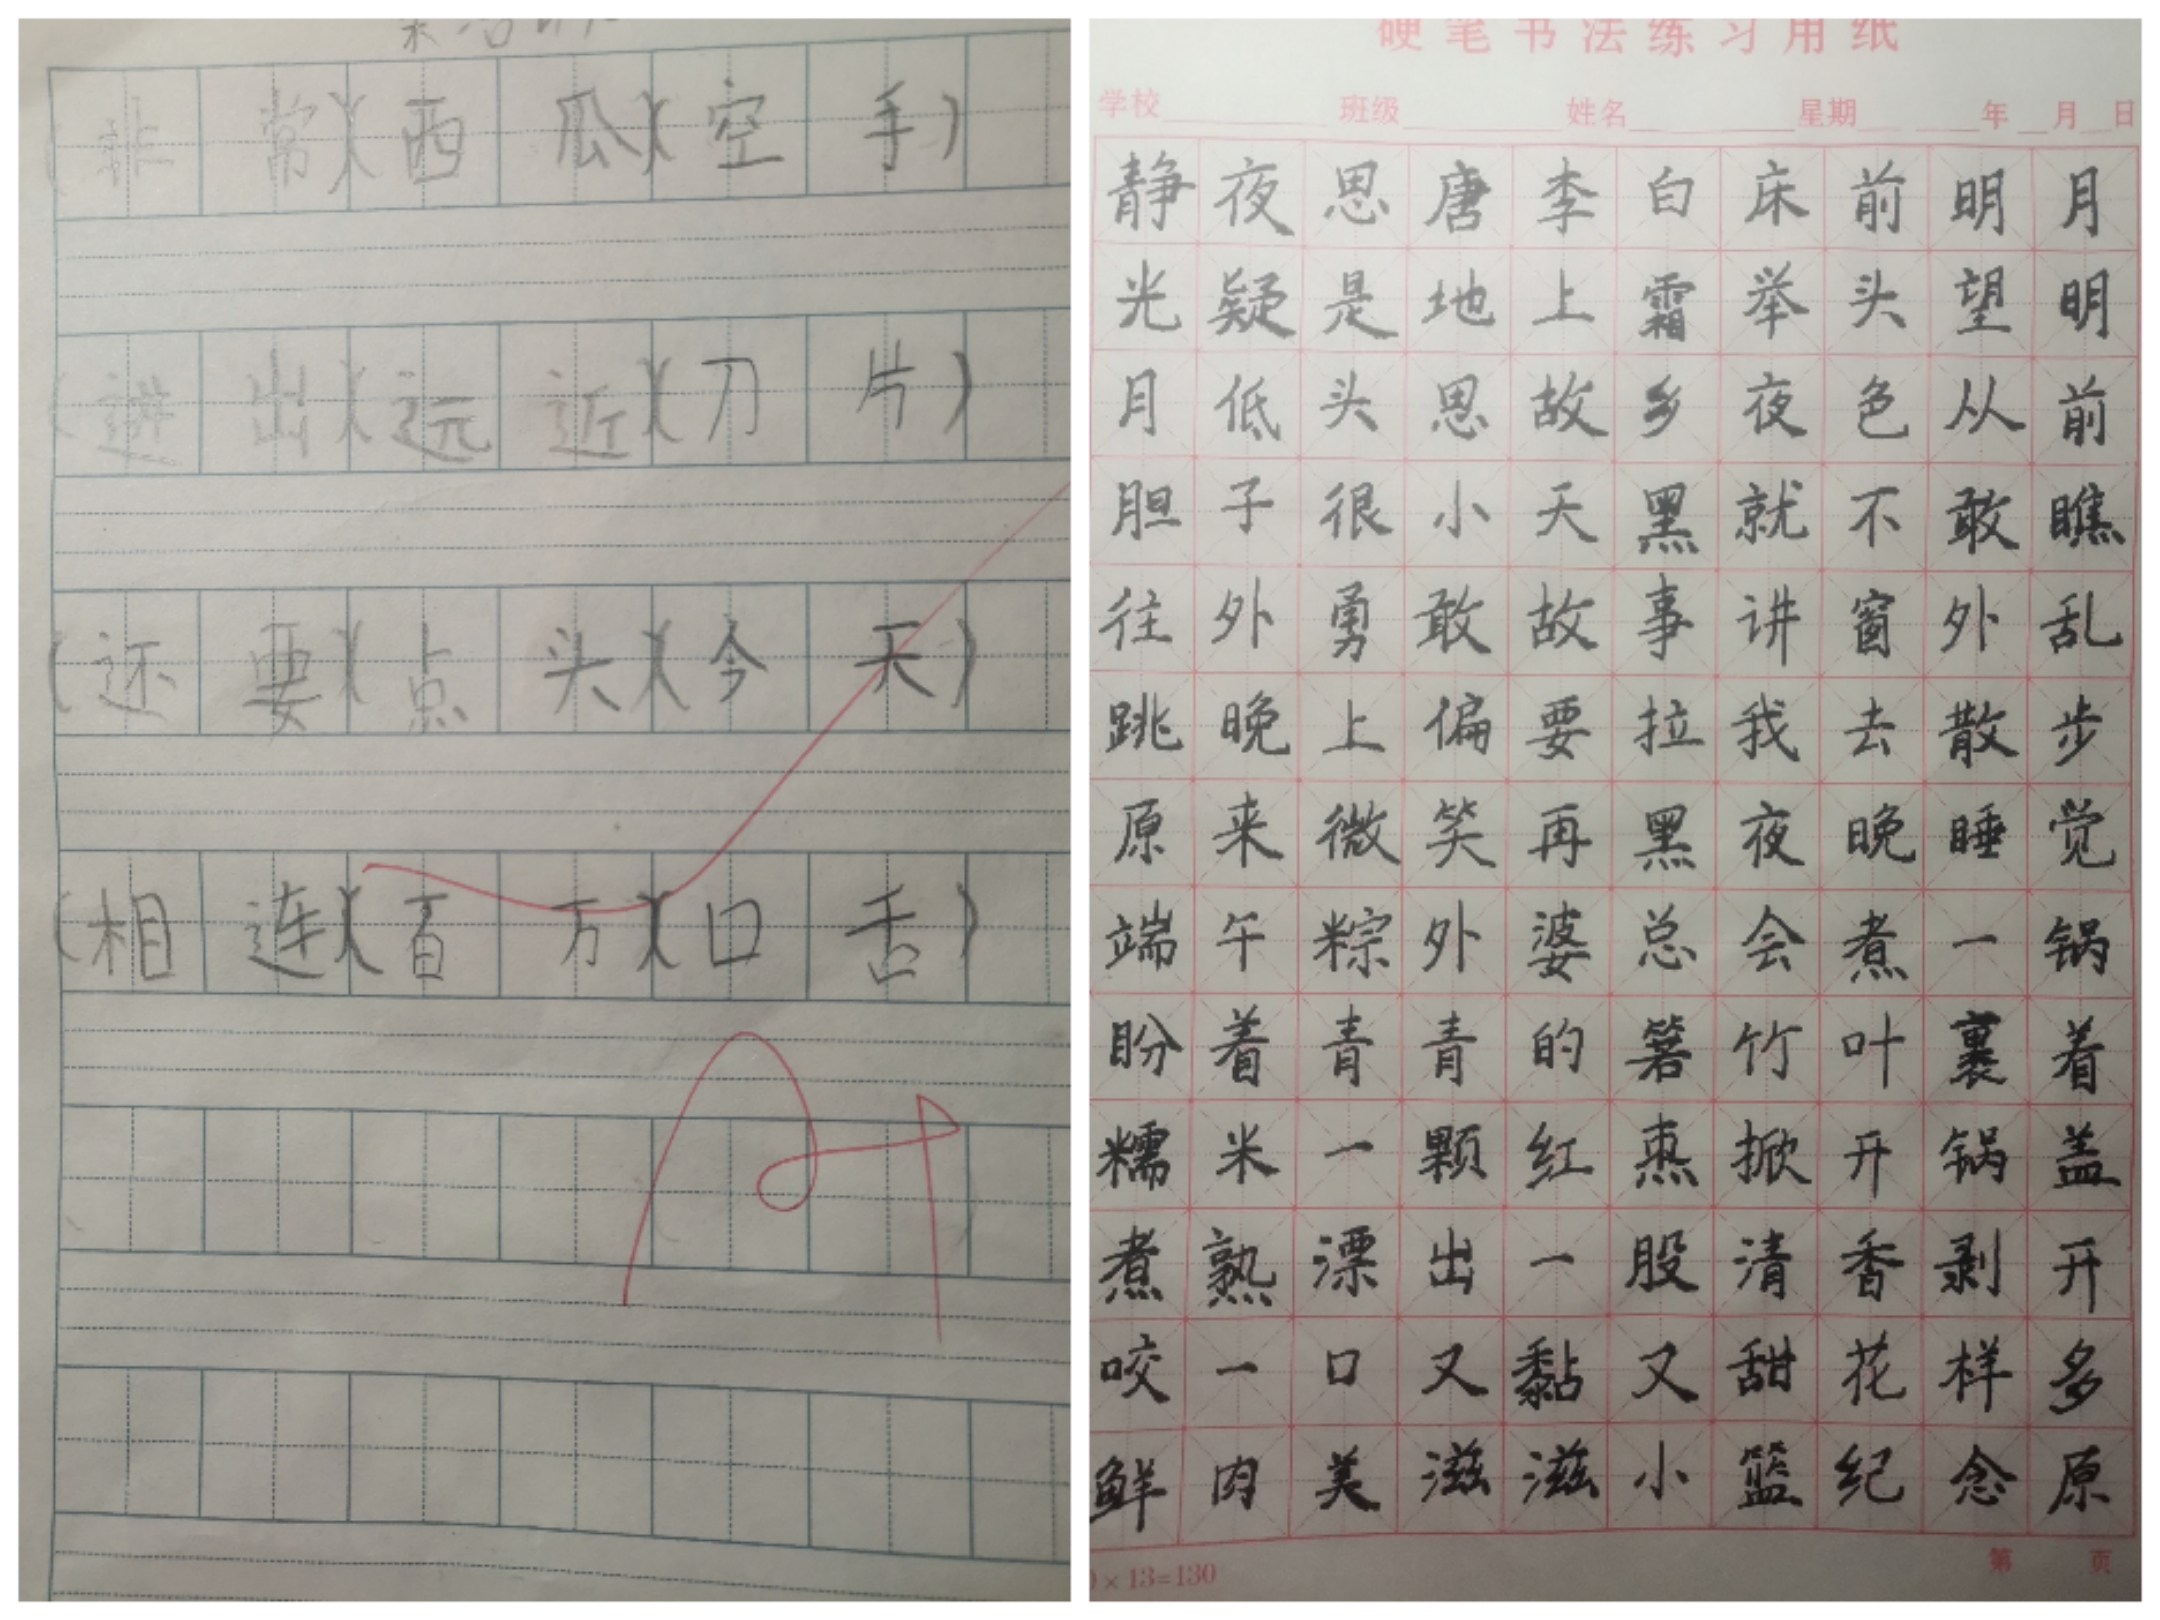 (非常)(西瓜)(空手)
(进出)(远近)(刀片)
(还要)(点头)(今天)
(相连)(百万)(口舌)
硬笔书法练习用纸
学校 班级 姓名 星期 年 月 日
静夜思唐李白床前明月
光疑是地上霜举头望明
月低头思故乡夜色从前
胆子很小天黑就不敢瞧
往外勇敢故事讲窗外乱
跳晚上偏要拉我去散步
原来微笑再黑夜晚睡觉
端午粽外婆总会煮一锅
盼着青青的箬竹叶裹着
糯米一颗红枣掀开锅盖
煮熟漂出一股清香剥开
咬一口又黏又甜花样多
鲜肉美滋滋小篮纪念原
×13=130
第 页